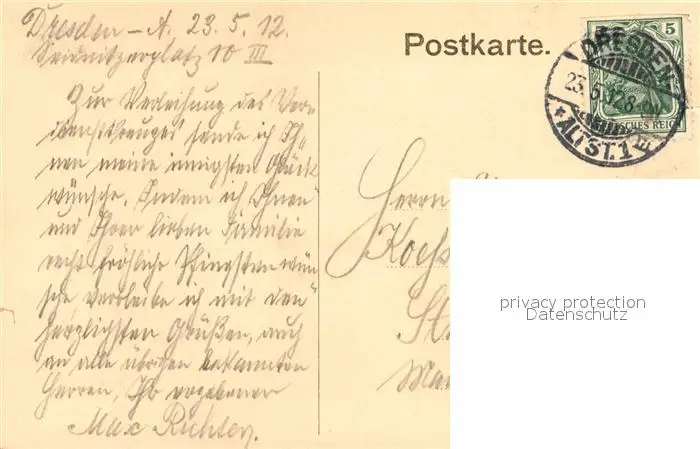 Dresden – A. 23. 5. 12.
Seidnitzerplatz 10 III
Postkarte.
Zur Verleihung des Ver-
dienstkreuzes sende ich Ih-
nen meine innigsten Glück
wünsche. Indem ich Ihnen
und Ihrer lieben Familie
recht fröhliche Pfingsten wün
sche verbleibe ich mit den
herzlichsten Grüßen, auch
an alle übrigen bekannten
Herren, Ihr ergebener
Max Richter.
5
DRESDEN
23.5.12.8-
*ALTST.1
DEUTSCHES REICH
Herrn
privacy protection
Datenschutz